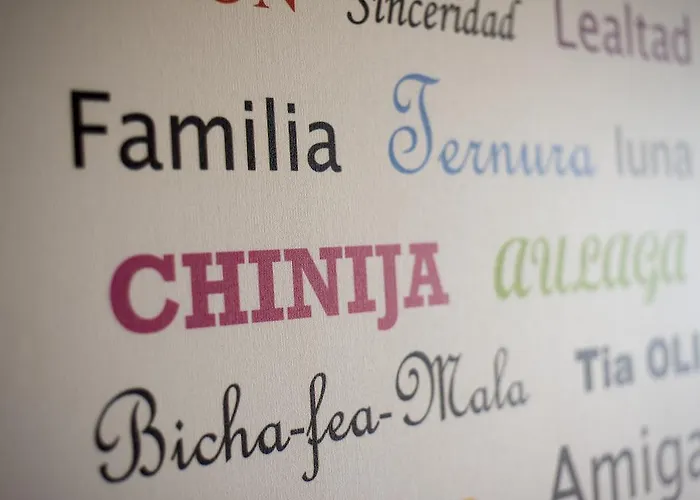 ON
Sinceridad Lealtad
Familia Ternura luna
CHINIJA AULAGA
Bicha-fea-Mala Tia OLI
Amiga